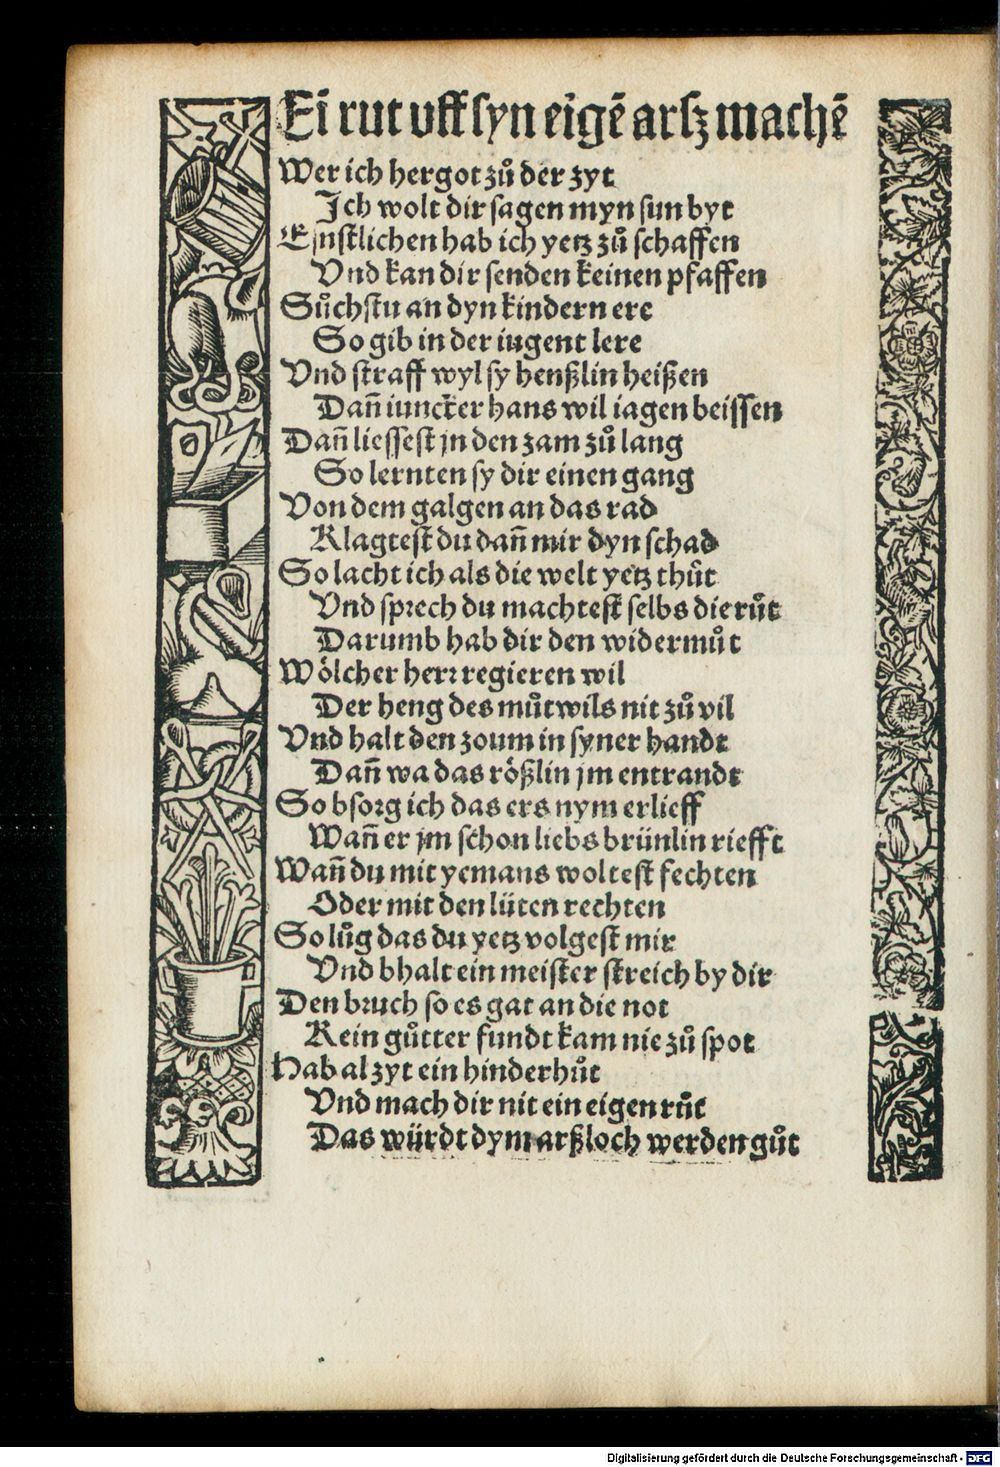 Ei̅ rut vff syn eige̅ arsz mache̅
Wer ich hergot zů der zyt
Ich wolt dir sagen myn sun byt
Ernstlichen hab ich yetz zů schaffen
Vnd kan dir senden keinen pfaffen
Sůchstu an dyn kindern ere
So gib in der iugent lere
Vnd straff wyl sy henßlin heißen
Dan̅ iuncker hans wil iagen beissen
Dan̅ liessest jn den zam zů lang
So lernten sy dir einen gang
Von dem galgen an das rad
Klagtest du dan̅ mir dyn schad
So lacht ich als die welt yetz thůt
Vnd sprech du machtest selbs die růt
Darumb hab dir den widermůt
Wölcher herr regieren wil
Der heng des můtwils nit zů vil
Vnd halt den zoum in syner handt
Dan̅ wa das rößlin jm entrandt
So bsorg ich das ers nym erlieff
Wan̅ er jm schon liebs brünlin riefft
Wan̅ du mit yemans woltest fechten
Oder mit den lüten rechten
So lůg das du yetz volgest mir
Vnd bhalt ein meister streich by dir
Den bruch so es gat an die not
Kein gůtter fundt kam nie zů spot
Hab alzyt ein hinderhůt
Vnd mach dir nit ein eigen růt
Das würdt dym arßloch werden gůt
Digitalisierung gefördert durch die Deutsche Forschungsgemeinschaft - DFG